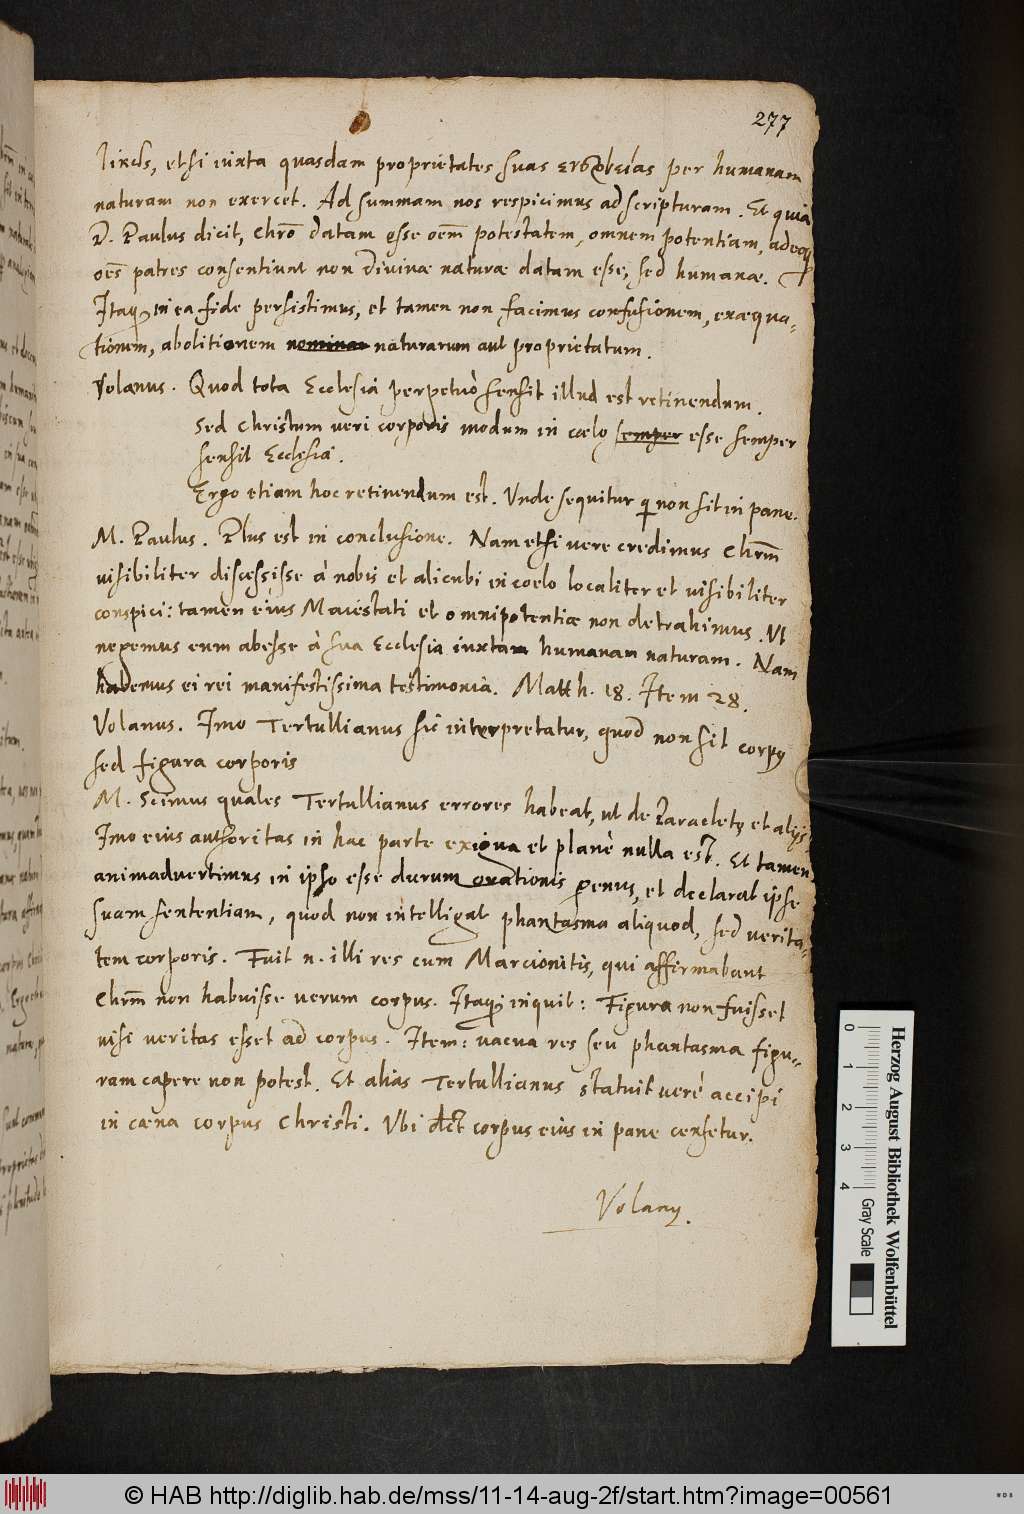 277
etsi iuxta quasdam proprietates suas per humanam
naturam non exercet. Ad summam nos respicimus ad scripturam. Et quia
D. Paulus dicit, Chrō datam esse oēm potestatem, omnem potentiam, adeoq
oēs patres consentiunt non divinae naturae datam esse, sed humanae.
Itaq in ea fide persistimus, et tamen non facimus confusionem, exaequa-
tionem, abolitionem naturarum aut proprietatum.
Volanus. Quod tota Ecclesia perpetuò sensit illud est retinendum.
Sed Christum veri corporis modum in coelo semper esse semper
sensit Ecclesia.
Ergo etiam hoc retinendum est. Unde sequitur q non sit in pane.
M. Paulus. Plus est in conclusione. Nam etsi vere credimus Chrm̄
visibiliter discessisse à nobis et alicubi in coelo localiter et visibiliter
conspici: tamen eius Maiestati et omnipotentiae non detrahimus. Ut
negemus eum abesse à sua Ecclesia iuxta humanam naturam. Nam
habemus ei rei manifestissima testimonia. Matth. 18. Item 28.
Volanus. Imo Tertullianus sic interpretatur, quod non sit corpus
sed figura corporis
M. Scimus quales Tertullianus errores habeat, ut de Paracleto et alijs
Imo eius authoritas in hac parte exigua et planè nulla est. Et tamen
animadvertimus in ipso esse durum orationis genus, et declarat ipse
suam sententiam, quod non intelligat phantasma aliquod, sed verita-
tem corporis. Fuit n. illi res cum Marcionitis, qui affirmabant
Chrm̄ non habuisse verum corpus. Itaq inquit: Figura non fuisset
nisi veritas esset ad corpus. Item: vacua res seu phantasma figu-
ram capere non potest. Et alias Tertullianus statuit verè accipi
in caena corpus Christi. Ubi corpus eius in pane censetur.
Volanus.
Herzog August Bibliothek Wolfenbüttel
0 1 2 3 4 Gray Scale
© HAB http://diglib.hab.de/mss/11-14-aug-2f/start.htm?image=00561